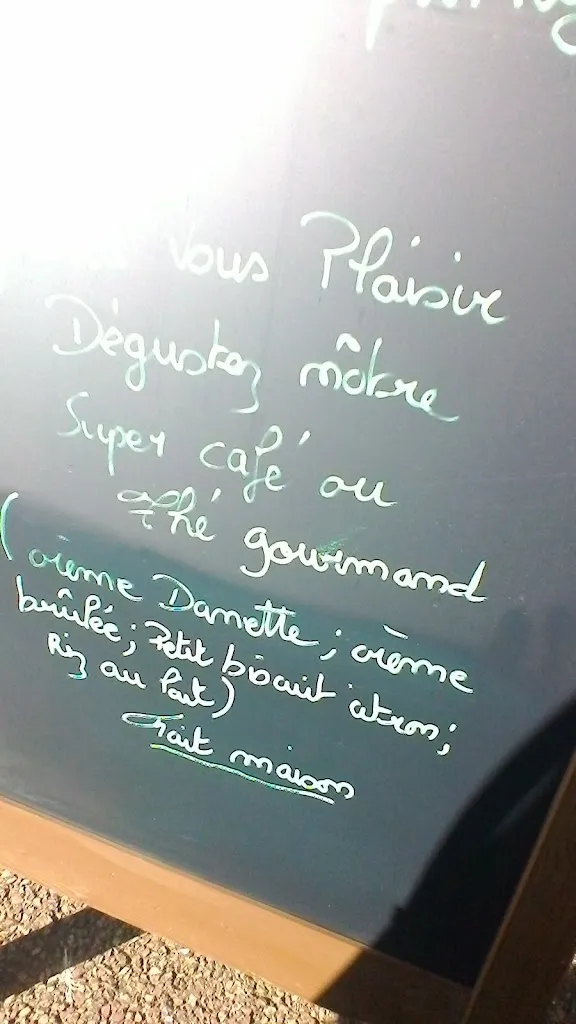 vous Plaisir
Dégustez nôtre
Super café ou
thé gourmand
(crème Danette ; crème
brûlée ; Petit biscuit citron ;
Riz au lait)
Fait maison